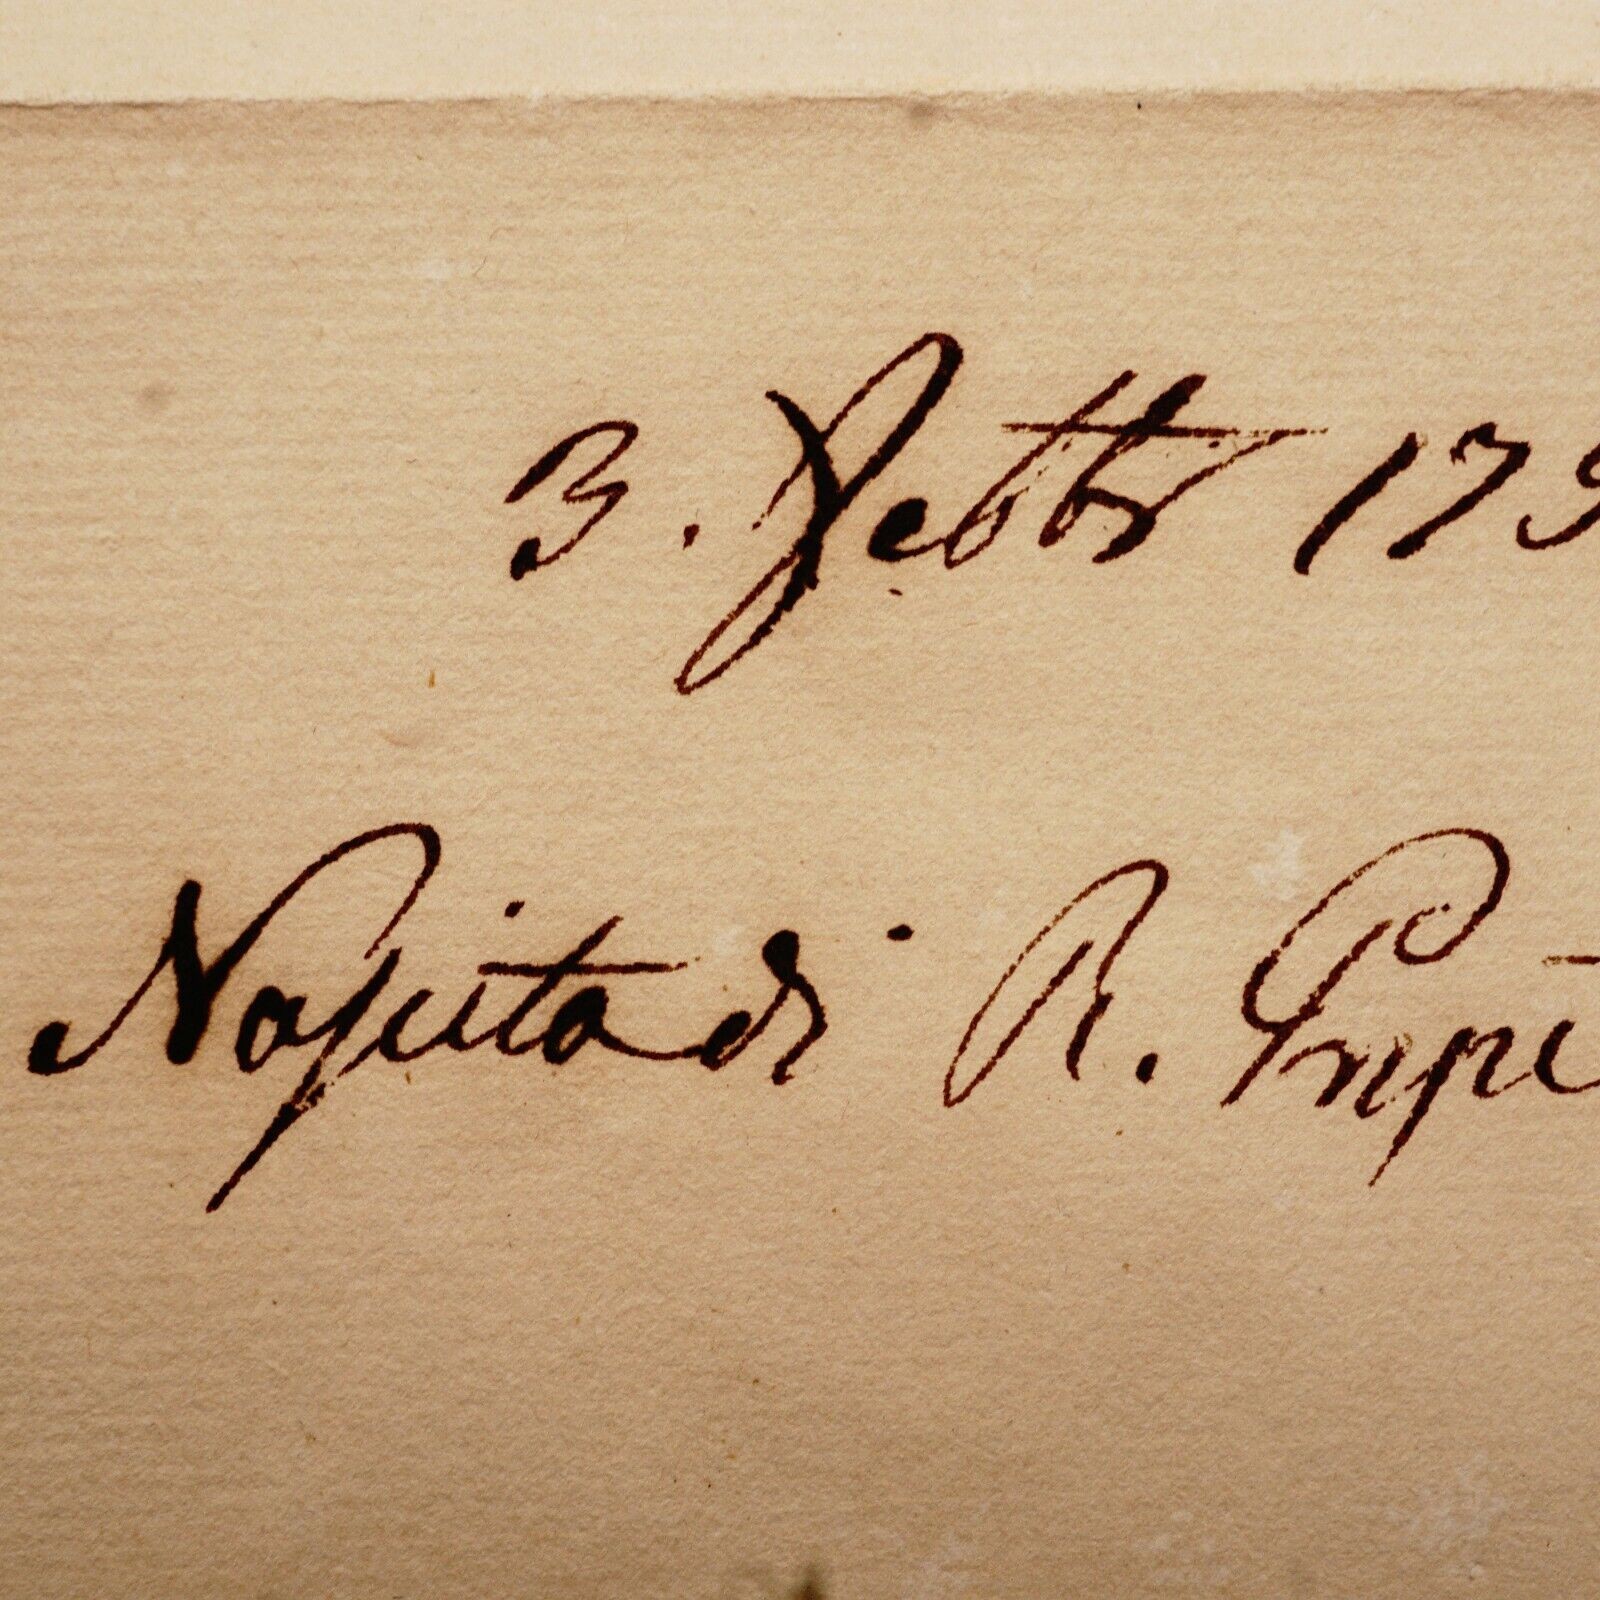 3. Febbr 179
Nascita di R. Impi